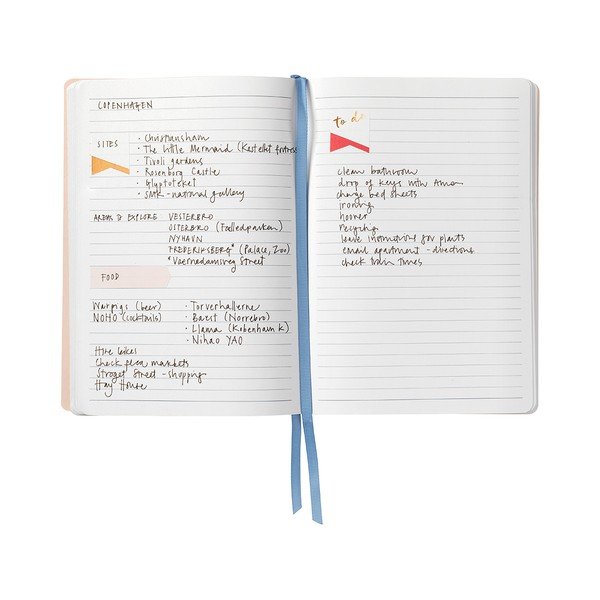 COPENHAGEN
SITES
· Christiansham
· The Little Mermaid (Kastellet fortress
· Tivoli gardens
· Rosenborg Castle
· Glyptoteket
· SMK - national gallery
AREAS TO EXPLORE
VESTERBRO
OSTERBRO (Faelledparken)
NYHAVN
FREDERIKSBERG* (Palace, Zoo)
* Vaernedamsveg Street
FOOD
Warpigs (beer)
NOHO (cocktails)
· Torvehallerne
· Baest (Norrebro)
· Llama (Kobenhavn K)
· Nihao YAO
Hire bikes
Check flea markets
Stroget Street - shopping
Hay House
to do
clean bathroom
drop of keys with
change bed sheets
ironing
hoover
recycling
leave instructions for plants
email apartment - directions
check train times